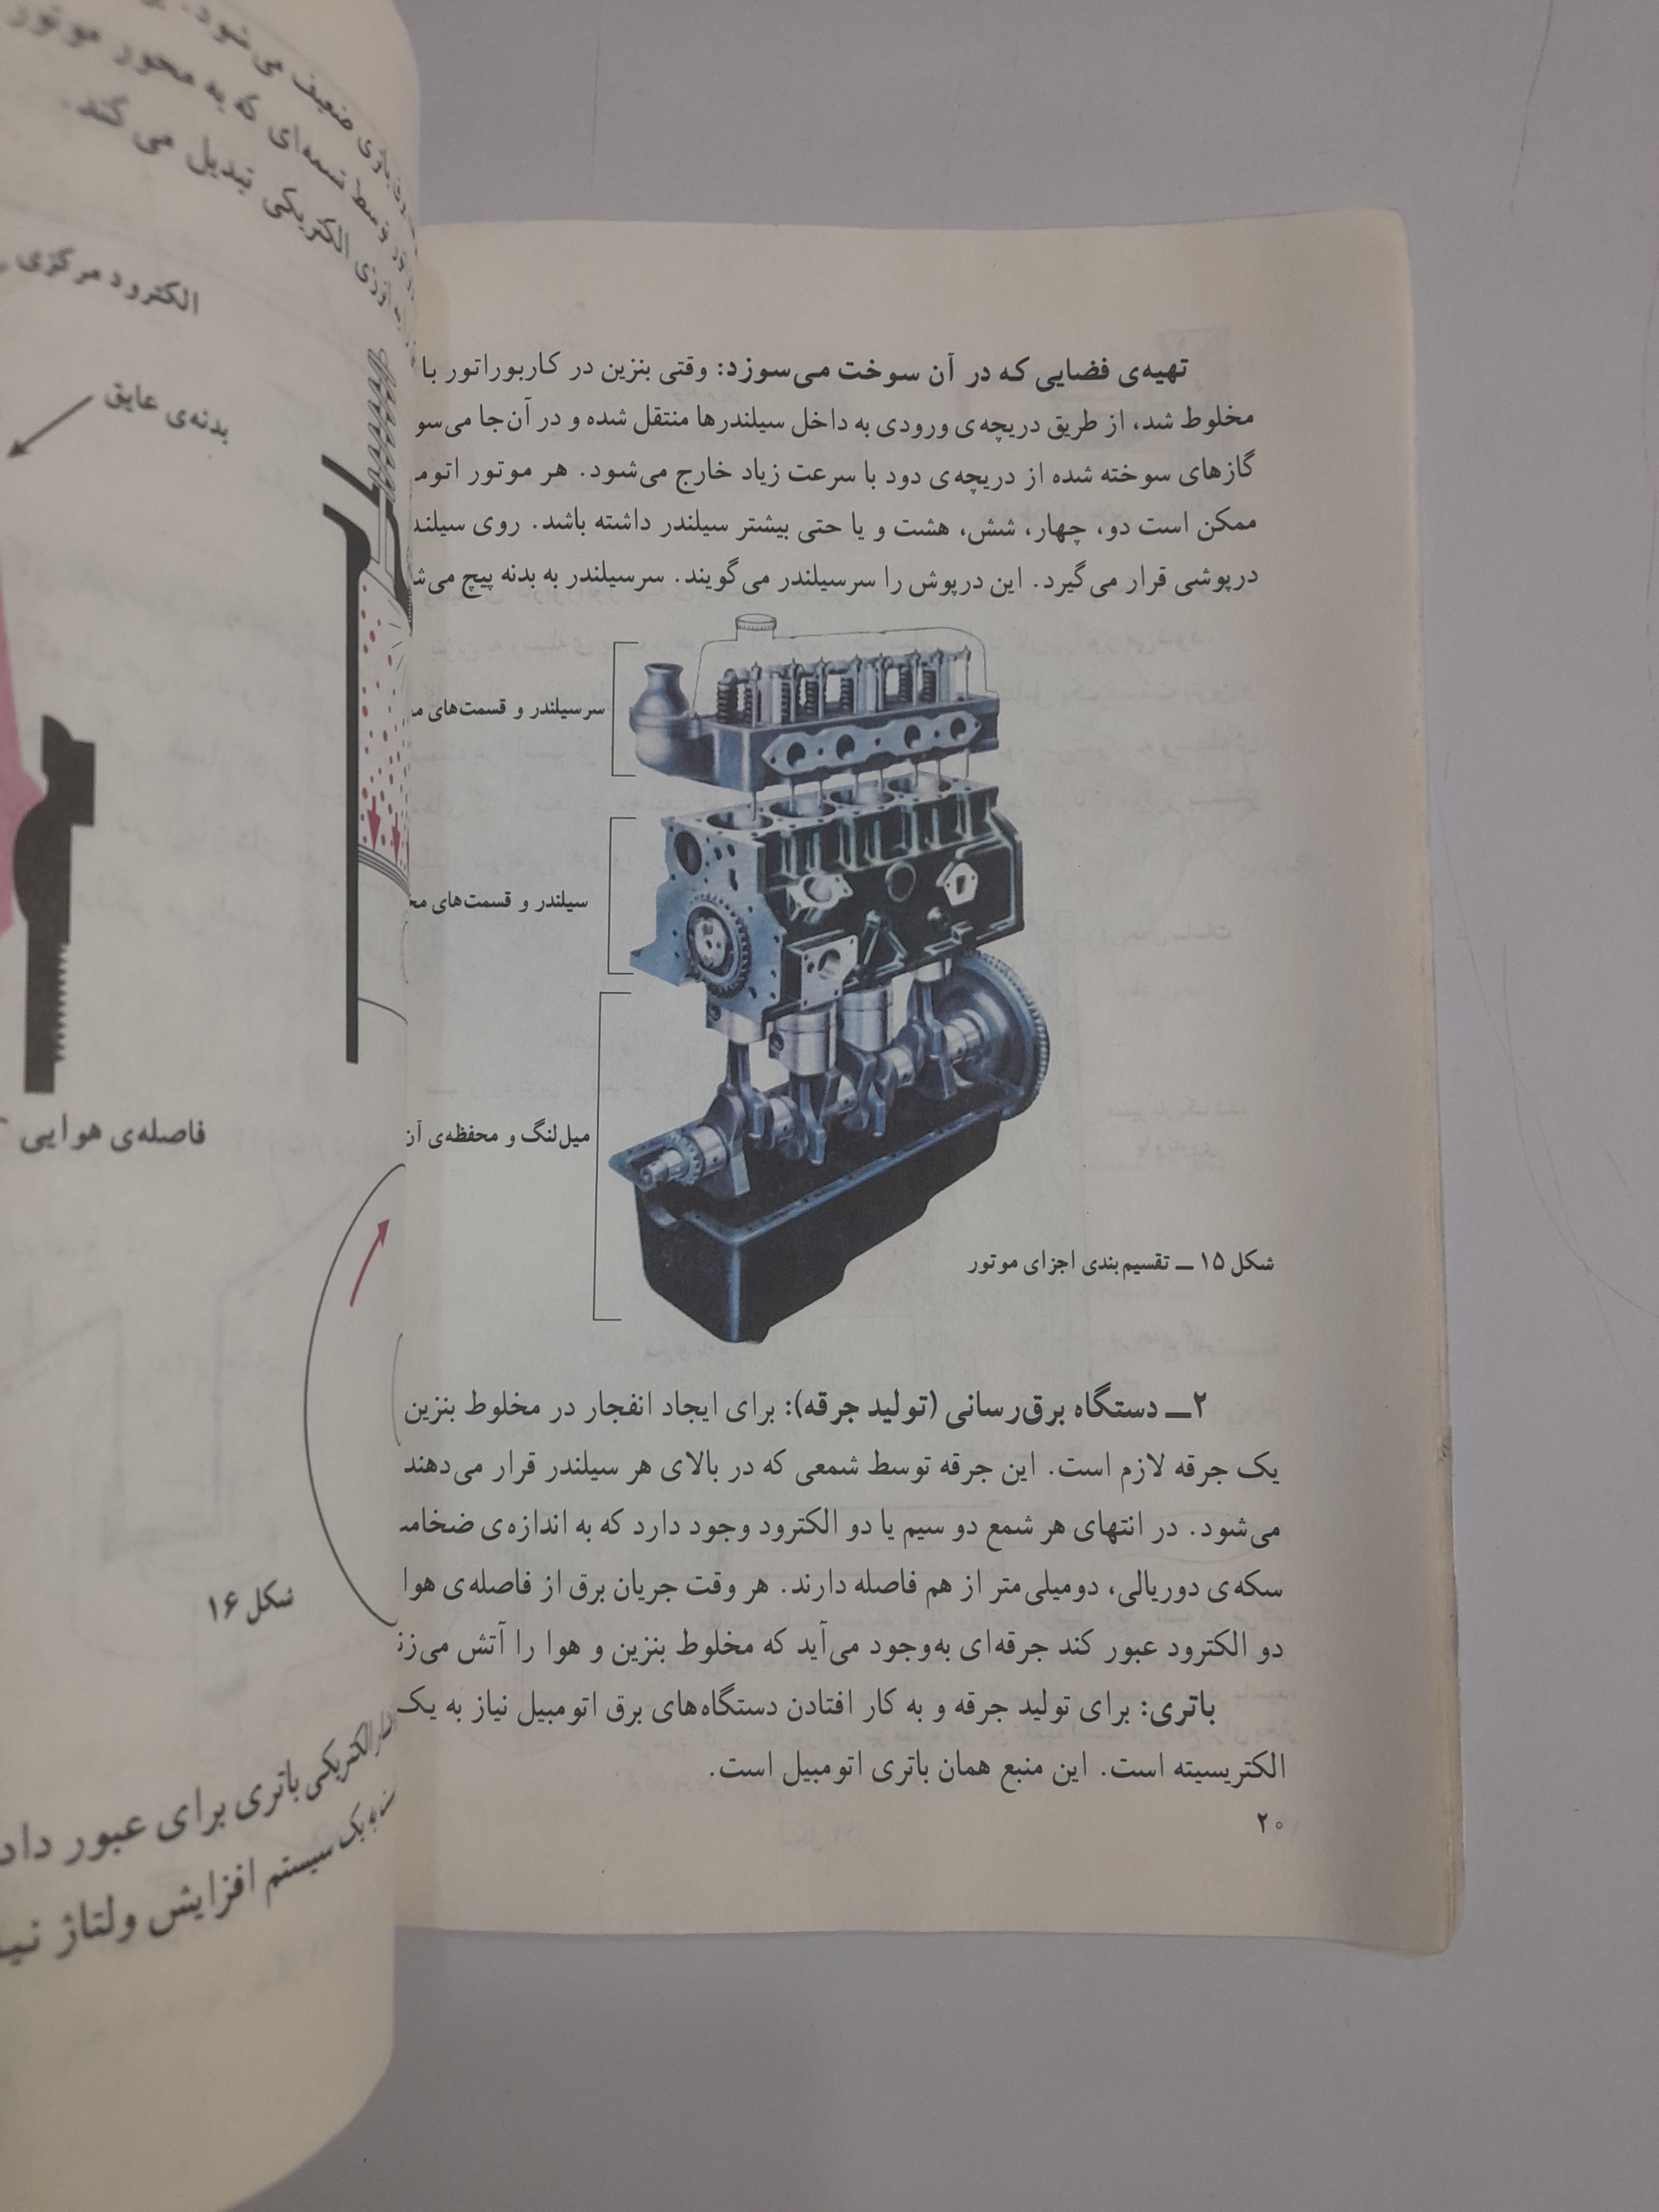 تهیه‌ی فضایی که در آن سوخت می‌سوزد: وقتی بنزین در کاربوراتور با
مخلوط شد، از طریق دریچه‌ی ورودی به داخل سیلندرها منتقل شده و در آن‌جا می‌سو
گازهای سوخته شده از دریچه‌ی دود با سرعت زیاد خارج می‌شود. هر موتور اتوم
ممکن است دو، چهار، شش، هشت و یا حتی بیشتر سیلندر داشته باشد. روی سیلند
درپوشی قرار می‌گیرد. این درپوش را سرسیلندر می‌گویند. سرسیلندر به بدنه پیچ می‌ش
سرسیلندر و قسمت‌های
سیلندر و قسمت‌های مح
میل‌لنگ و محفظه‌ی آن
شکل ۱۵ ــ تقسیم‌بندی اجزای موتور
۲ــ دستگاه برق‌رسانی (تولید جرقه): برای ایجاد انفجار در مخلوط بنزین
یک جرقه لازم است. این جرقه توسط شمعی که در بالای هر سیلندر قرار می‌دهند
می‌شود. در انتهای هر شمع دو سیم یا دو الکترود وجود دارد که به اندازه‌ی ضخام
سکه‌ی دوریالی، دومیلی‌متر از هم فاصله دارند. هر وقت جریان برق از فاصله‌ی هوا
دو الکترود عبور کند جرقه‌ای به‌وجود می‌آید که مخلوط بنزین و هوا را آتش می‌زن
باتری: برای تولید جرقه و به کار افتادن دستگاه‌های برق اتومبیل نیاز به یک
الکتریسیته است. این منبع همان باتری اتومبیل است.
۲۰
ضعیف می‌شود.
توسط تسمه‌ای که به محور موتور
انرژی الکتریکی تبدیل می‌کند.
الکترود مرکزی
بدنه‌ی عایق
فاصله‌ی هوایی
شکل ۱۶
الکتریکی باتری برای عبور داد
به یک سیستم افزایش ولتاژ نیا